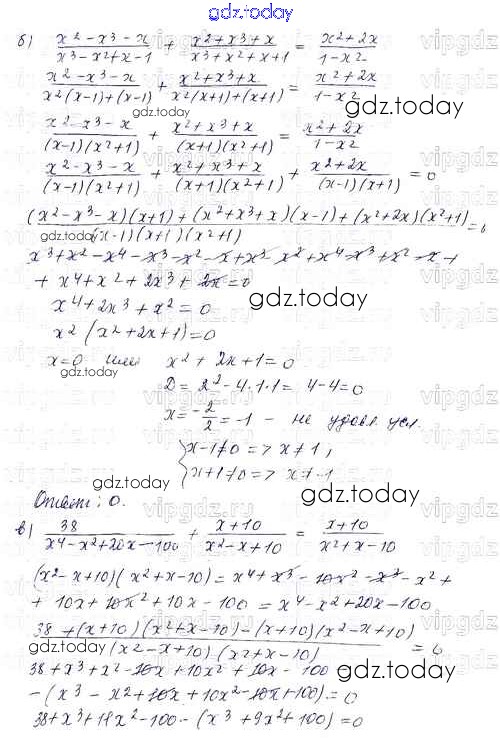 gdz.today
б) (x² - x³ - x)/(x³ - x² + x - 1) + (x² + x³ + x)/(x³ + x² + x + 1) = (x² + 2x)/(1 - x²)
(x² - x³ - x)/(x²(x-1)+(x-1)) + (x² + x³ + x)/(x²(x+1)+(x+1)) = (x² + 2x)/(1 - x²)
gdz.today
(x² - x³ - x)/((x-1)(x²+1)) + (x² + x³ + x)/((x+1)(x²+1)) = (x² + 2x)/(1 - x²)
(x² - x³ - x)/((x-1)(x²+1)) + (x² + x³ + x)/((x+1)(x²+1)) + (x² + 2x)/((x-1)(x+1)) = 0
((x² - x³ - x)(x+1) + (x² + x³ + x)(x-1) + (x² + 2x)(x²+1))/((x-1)(x+1)(x²+1)) = 0
gdz.today
x³ + x² - x⁴ - x³ - x² - x + x³ - x² + x⁴ - x³ + x² - x +
+ x⁴ + x² + 2x³ + 2x = 0
x⁴ + 2x³ + x² = 0
gdz.today
x² (x² + 2x + 1) = 0
x = 0 или x² + 2x + 1 = 0
gdz.today
D = 2² - 4·1·1 = 4 - 4 = 0
x = -2/2 = -1 - не удовл. усл.
x - 1 ≠ 0 => x ≠ 1,
x + 1 ≠ 0 => x ≠ -1
gdz.today
Ответ: 0.
в) 38/(x⁴ - x² + 20x - 100) + (x+10)/(x² - x + 10) = (x+10)/(x² + x - 10)
(x² - x + 10)(x² + x - 10) = x⁴ + x³ - 10x² - x³ - x² +
+ 10x + 10x² + 10x - 100 = x⁴ - x² + 20x - 100
(38 + (x+10)(x² + x - 10) - (x+10)(x² - x + 10))/((x² - x + 10)(x² + x - 10)) = 0
gdz.today
38 + x³ + x² - 10x + 10x² + 10x - 100
gdz.today
- (x³ - x² + 10x + 10x² - 10x + 100) = 0
38 + x³ + 11x² - 100 - (x³ + 9x² + 100) = 0
vipgdz.ru